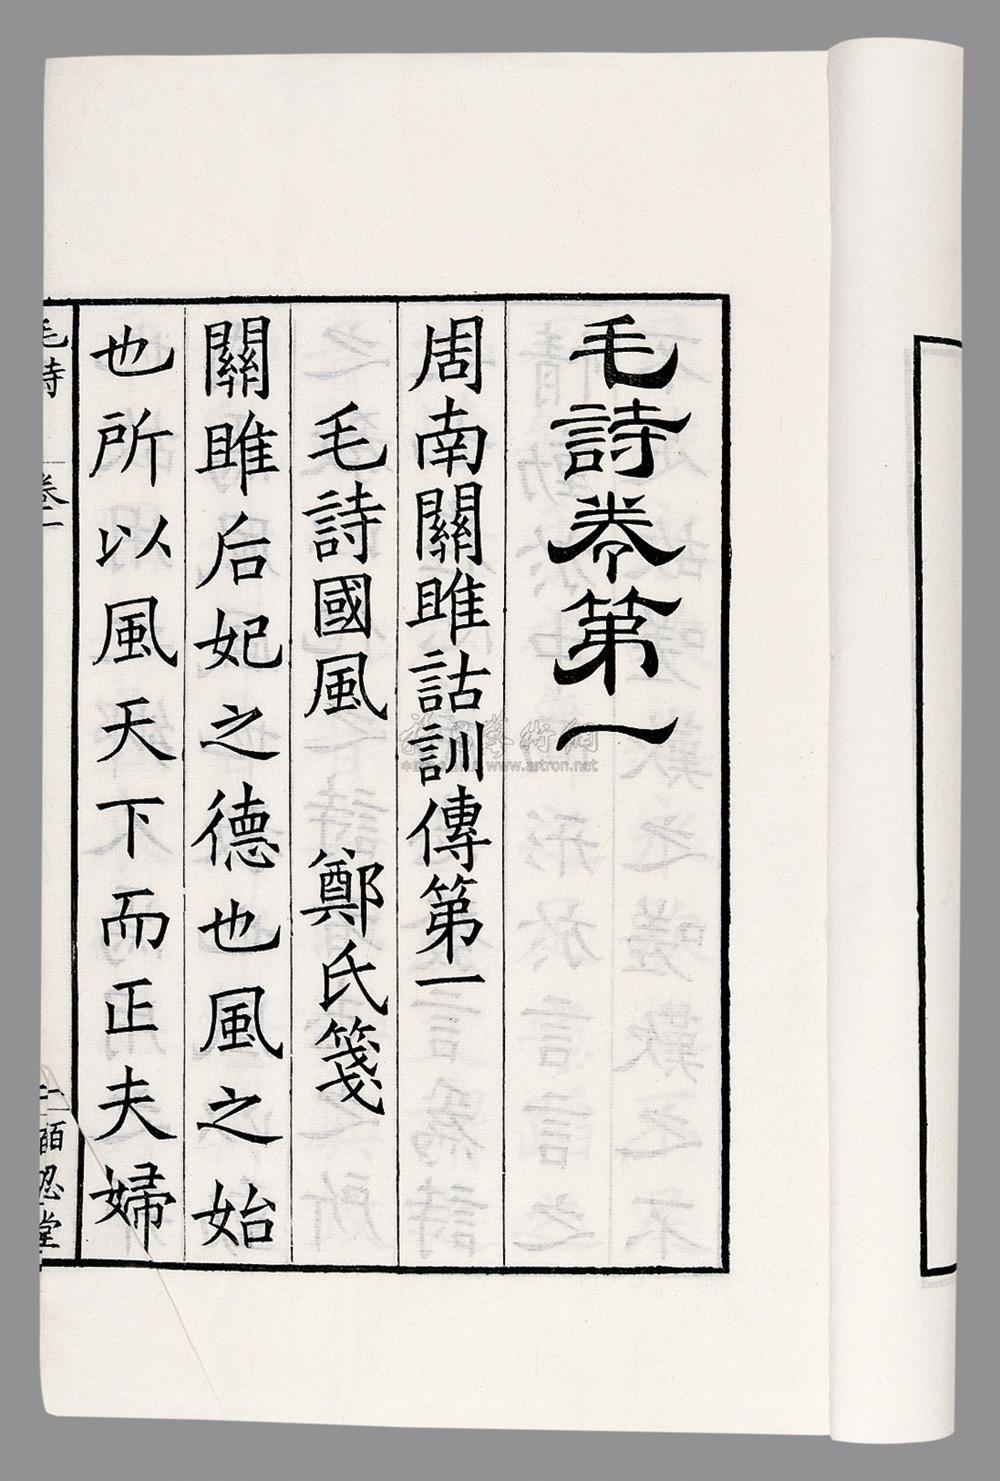 毛詩卷第一
周南關雎詁訓傳第一
毛詩國風 鄭氏箋
關雎后妃之德也風之始
也所以風天下而正夫婦
毛詩 卷一
一 百忍堂
www.artron.net